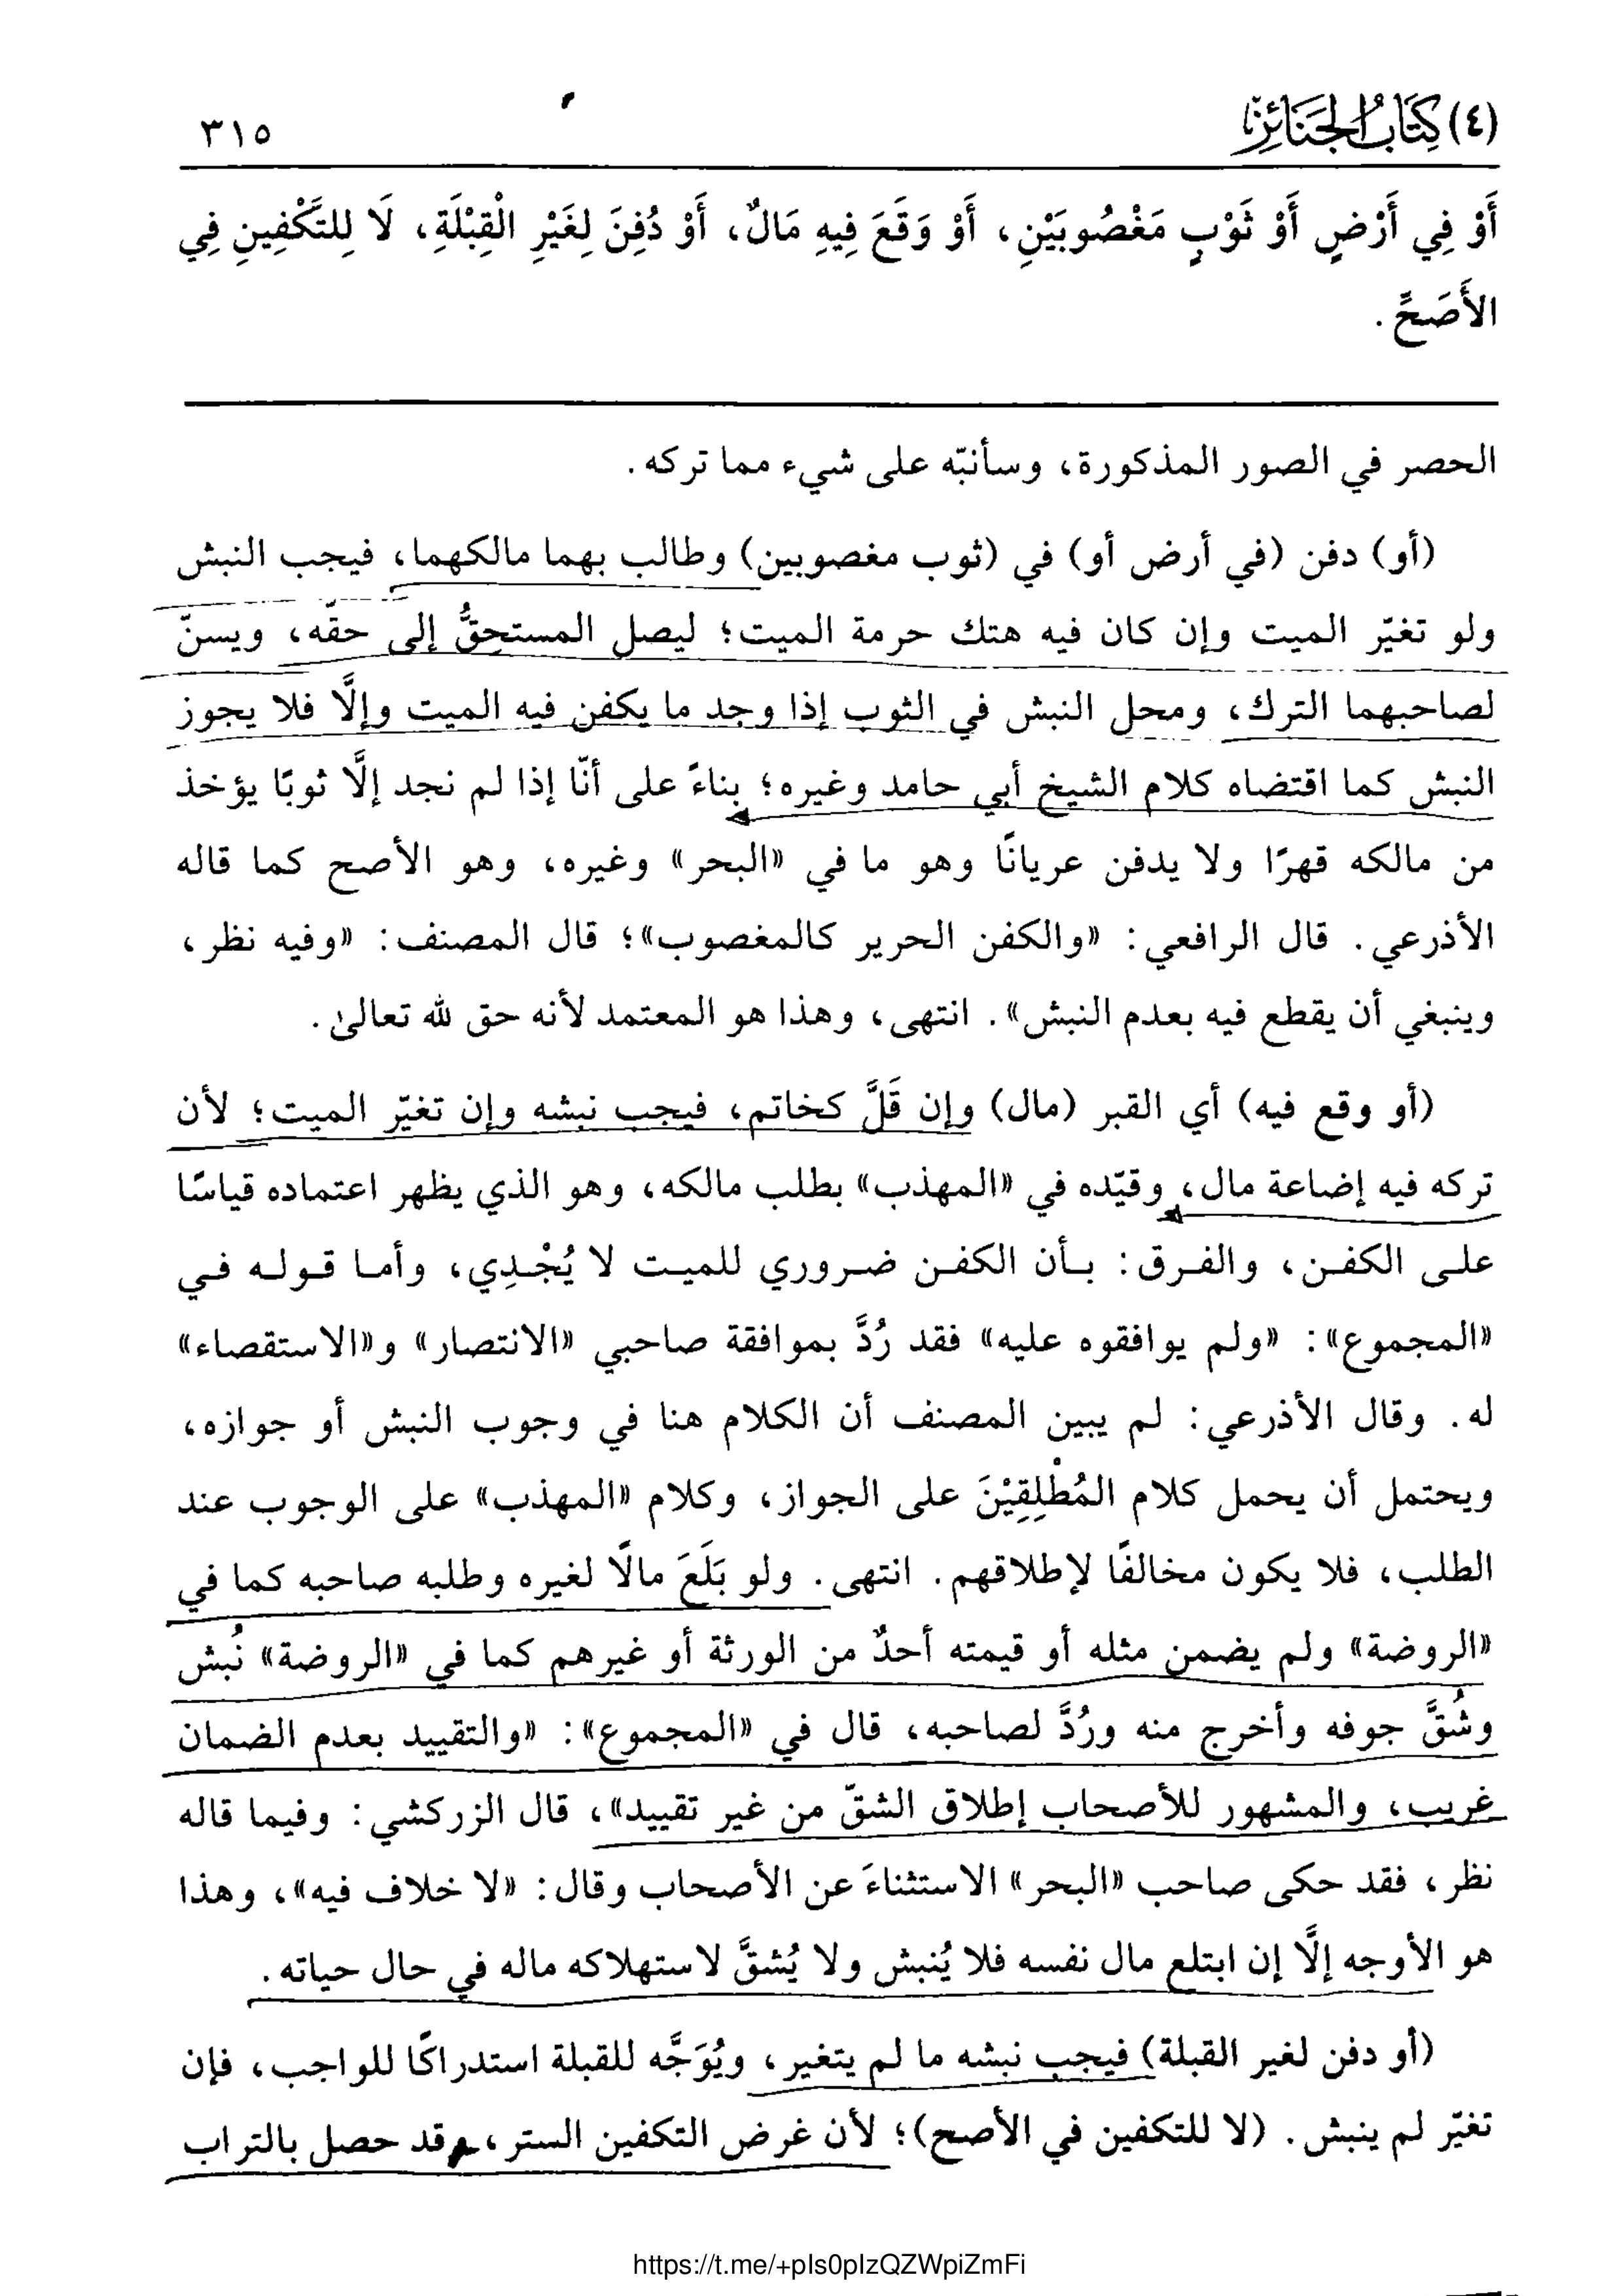 (٤) كِتَابُ الجَنَائِزِ
٣١٥
أَوْ فِي أَرْضٍ أَوْ ثَوْبٍ مَغْصُوبَيْنِ، أَوْ وَقَعَ فِيهِ مَالٌ، أَوْ دُفِنَ لِغَيْرِ الْقِبْلَةِ، لَا لِلتَّكْفِينِ فِي
الأَصَحِّ.
الحصر في الصور المذكورة، وسأنبّه على شيء مما تركه.
(أو) دفن (في أرض أو) في (ثوب مغصوبين) وطالب بهما مالكهما، فيجب النبش
ولو تغيّر الميت وإن كان فيه هتك حرمة الميت؛ ليصل المستحقُّ إلى حقّه، ويسنّ
لصاحبهما الترك، ومحل النبش في الثوب إذا وجد ما يكفن فيه الميت وإلَّا فلا يجوز
النبش كما اقتضاه كلام الشيخ أبي حامد وغيره؛ بناءً على أنّا إذا لم نجد إلَّا ثوبًا يؤخذ
من مالكه قهرًا ولا يدفن عريانًا وهو ما في «البحر» وغيره، وهو الأصح كما قاله
الأذرعي. قال الرافعي: «والكفن الحرير كالمغصوب»؛ قال المصنف: «وفيه نظر،
وينبغي أن يقطع فيه بعدم النبش». انتهى، وهذا هو المعتمد لأنه حق لله تعالىٰ.
(أو وقع فيه) أي القبر (مال) وإن قَلَّ كخاتم، فيجب نبشه وإن تغيّر الميت؛ لأن
تركه فيه إضاعة مال، وقيّده في «المهذب» بطلب مالكه، وهو الذي يظهر اعتماده قياسًا
على الكفن، والفرق: بأن الكفن ضروري للميت لا يُجْدِي، وأما قوله في
«المجموع»: «ولم يوافقوه عليه» فقد رُدَّ بموافقة صاحبي «الانتصار» و«الاستقصاء»
له. وقال الأذرعي: لم يبين المصنف أن الكلام هنا في وجوب النبش أو جوازه،
ويحتمل أن يحمل كلام المُطْلِقِيْنَ على الجواز، وكلام «المهذب» على الوجوب عند
الطلب، فلا يكون مخالفًا لإطلاقهم. انتهى. ولو بَلَعَ مالًا لغيره وطلبه صاحبه كما في
«الروضة» ولم يضمن مثله أو قيمته أحدٌ من الورثة أو غيرهم كما في «الروضة» نُبش
وشُقَّ جوفه وأخرج منه ورُدَّ لصاحبه، قال في «المجموع»: «والتقييد بعدم الضمان
غريب، والمشهور للأصحاب إطلاق الشقّ من غير تقييد»، قال الزركشي: وفيما قاله
نظر، فقد حكى صاحب «البحر» الاستثناءَ عن الأصحاب وقال: «لا خلاف فيه»، وهذا
هو الأوجه إلَّا إن ابتلع مال نفسه فلا يُنبش ولا يُشقَّ لاستهلاكه ماله في حال حياته.
(أو دفن لغير القبلة) فيجب نبشه ما لم يتغير، ويُوَجَّه للقبلة استدراكًا للواجب، فإن
تغيّر لم ينبش. (لا للتكفين في الأصح)؛ لأن غرض التكفين الستر، وقد حصل بالتراب
https://t.me/+pIs0pIzQZWpiZmFi